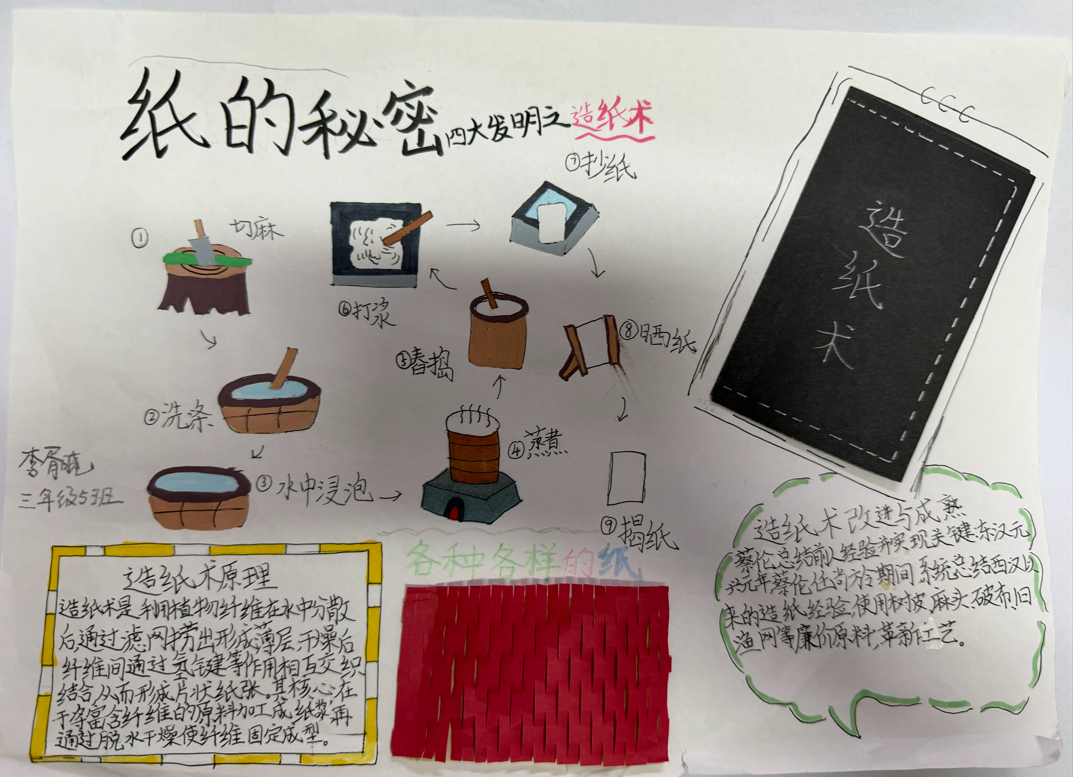 纸的秘密四大发明之造纸术
①
切麻
②洗涤
③水中浸泡
④蒸煮
⑤舂捣
⑥打浆
⑦抄纸
⑧晒纸
⑨揭纸
造
纸
术
李胥晓
三年级5班
造纸术原理
造纸术是利用植物纤维在水中分散
后,通过滤网捞出形成薄层,干燥后
纤维间通过氢键等作用相互交织
结合从而形成片状纸张。其核心在
于将富含纤维的原料加工成纸浆,再
通过脱水干燥使纤维固定成型。
各种各样的纸
造纸术改进与成熟
蔡伦总结前人经验并实现关键:东汉元
兴元年蔡伦任尚方令期间系统总结西汉以
来的造纸经验,使用树皮、麻头、破布、旧
渔网等廉价原料,革新工艺。